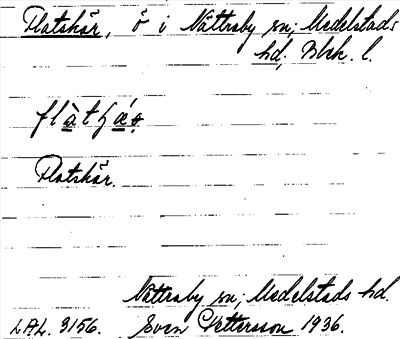 Flatskär, ö i Nättraby sn; Medelstads
hd; Blek. l.
Flatskär.
Nättraby sn; Medelstads hd.
LAL. 3156. Sven Pettersson 1936.